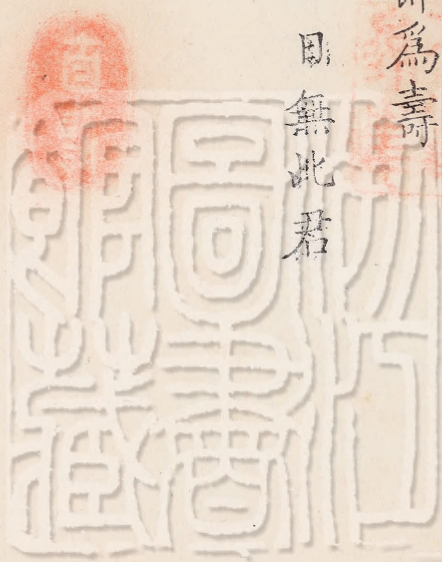 為壽
日無此君
浙江
圖書
館藏